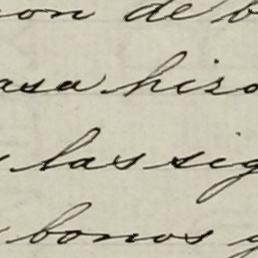 ion de b
asa hizo
las sig
bonos y